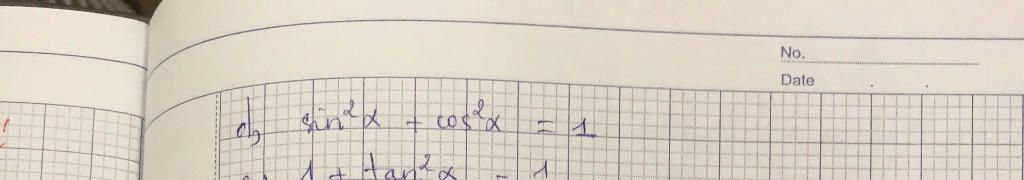 No.
Date
d, sin²α + cos²α = 1
1 + tan²α = 1